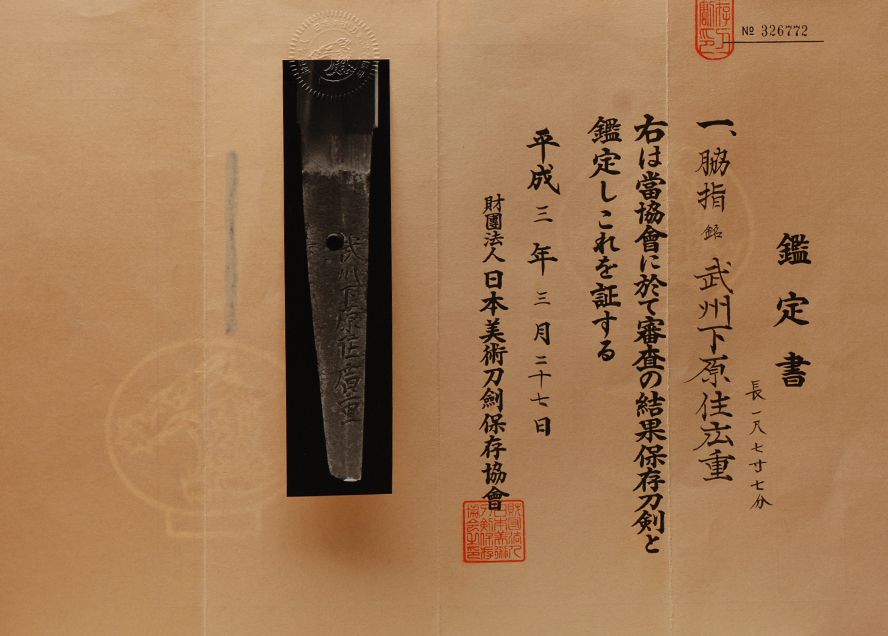 № 326772
鑑定書
一、脇指 銘 武州下原住広重
長一尺七寸七分
右は當協會に於て審査の結果保存刀剣と
鑑定しこれを証する
平成三年三月二十七日
財團法人日本美術刀劍保存協會
武州下原住廣重